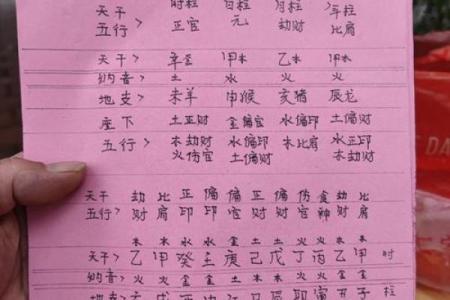 天干> 时柱 日柱 月柱 年柱
五行> 正官 元 劫财 比肩
天干> 辛金 甲木 乙木 甲木
纳音> 土 水 火 火
地支> 未羊 申猴 亥猪 辰龙
座下 土正财 金偏官 水偏印 土偏财
五行> 木劫财 水偏印 木比肩 水正印
火伤官 土偏财 木劫财
天干 劫 比 正 偏 偏 正 偏 伤 食 劫 比
五行> 财 肩 印 印 官 财 财 官 神 财 肩
木 木 水 水 金 土 土 火 火 木 木
天干> 乙 甲 癸 壬 庚 己 戊 丁 丙 乙 甲 时
纳音> 火 火 金 金 土 木 木 火 火 金 金